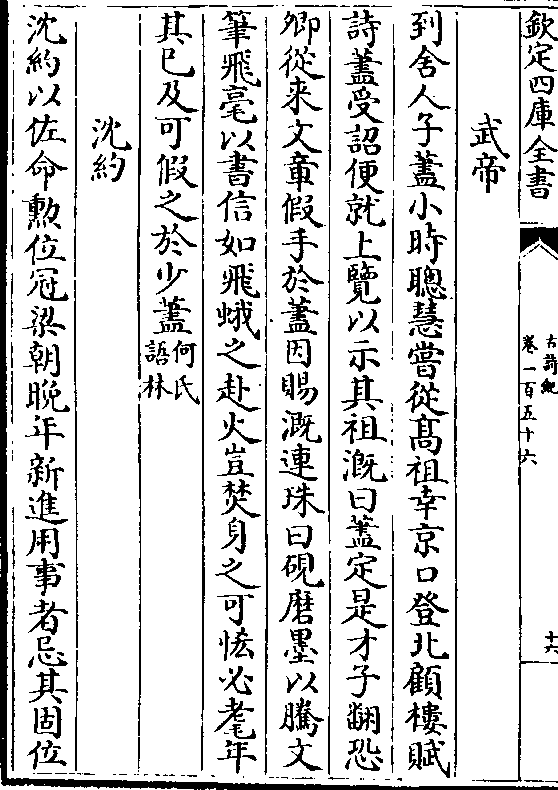 欽定四庫全書
古詩紀
卷一百五十六
十六
武帝
到舍人子藎小時聰慧嘗從髙祖幸京口登北顧樓賦
詩藎受詔便就上覽以示其祖溉曰藎定是才子翻恐
卿從来文章假手於藎因賜溉連珠曰硯磨墨以騰文
筆飛毫以書信如飛蛾之赴火豈焚身之可恡必耄年
其已及可假之於少藎何氏語林
沈約
沈約以佐命勲位冠梁朝晚年新進用事者忌其固位